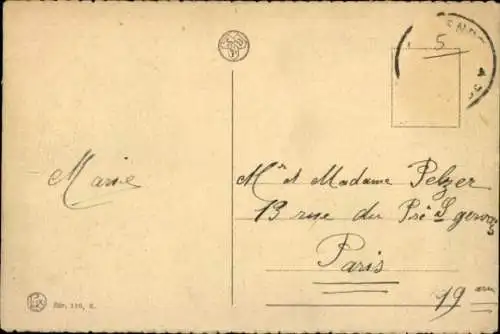 5
Marie
Mr et Madame Pelzer
13 rue du Pré St gervais
Paris
19 eme
Sér. 110, E.